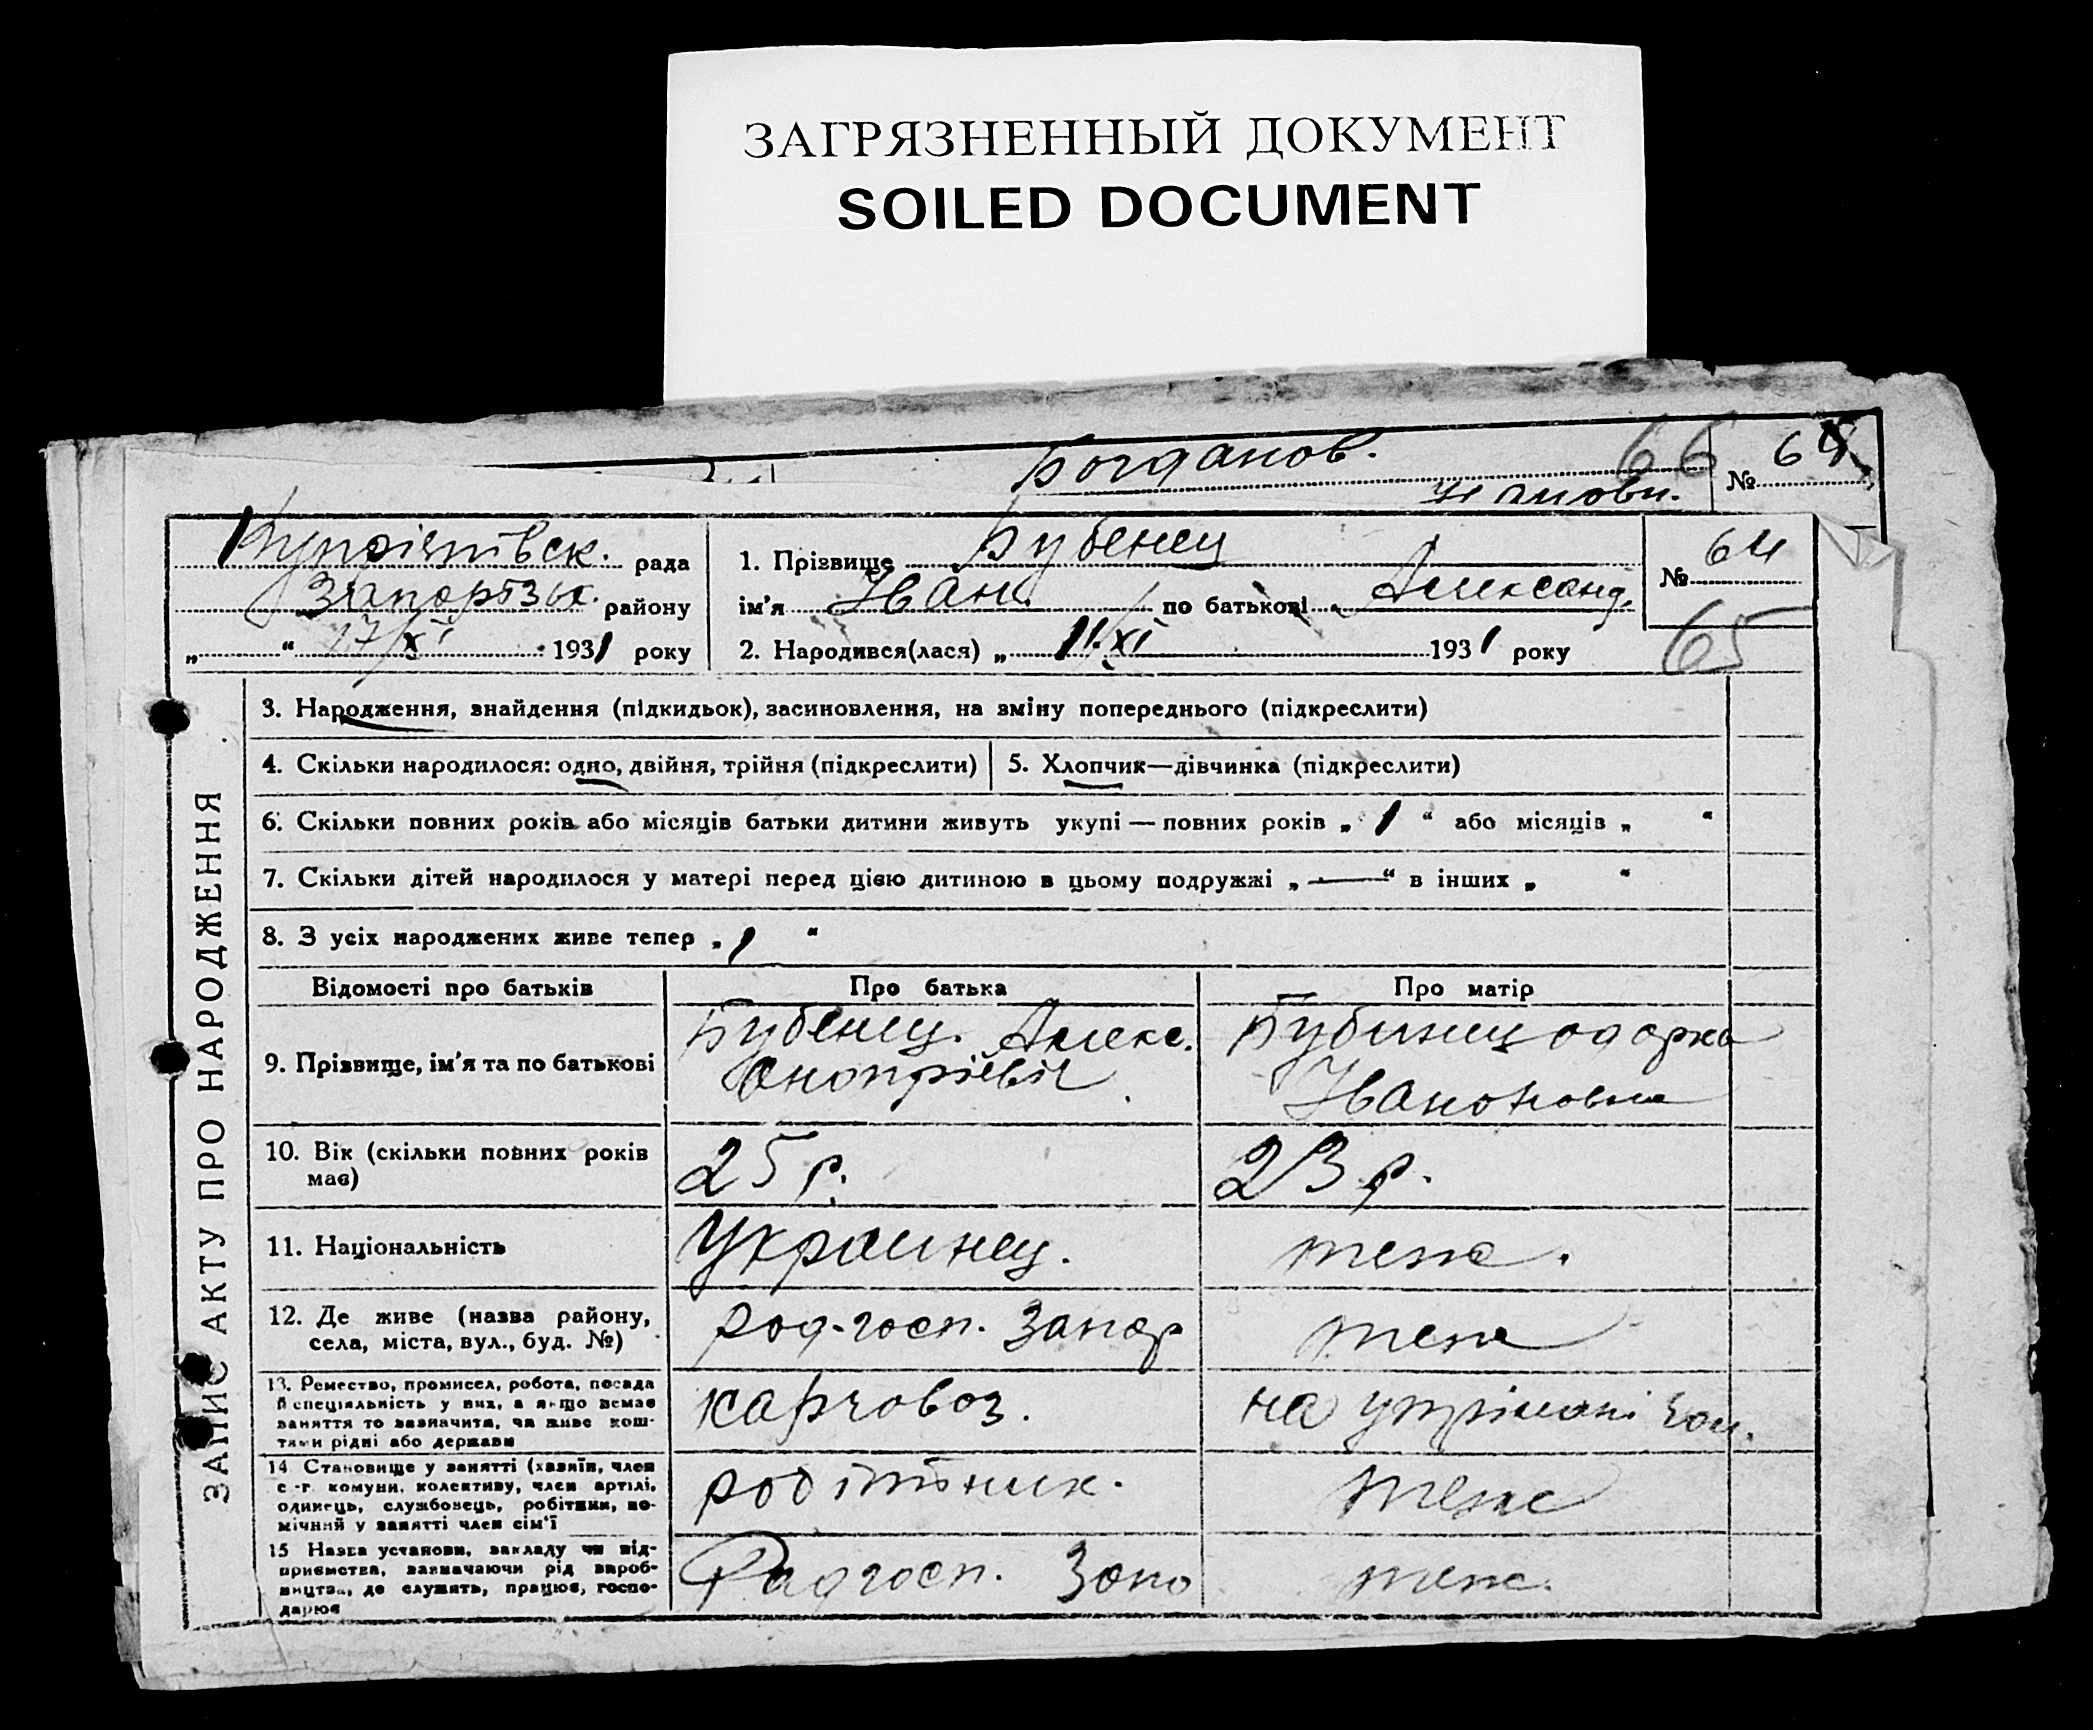 ЗАГРЯЗНЕННЫЙ ДОКУМЕНТ
SOILED DOCUMENT
Богданов. 66 № 64
рада 1. Прізвище Бубенец № 64
району ім'я Иван по батькові Александ.
„ “ 17/XI 1931 року 2. Народився(лася) „ 11/XI 1931 року 65
ЗАПИС АКТУ ПРО НАРОДЖЕННЯ
3. Народження, знайдення (підкидьок), засиновлення, на зміну попереднього (підкреслити)
4. Скільки народилося: одно, двійня, трійня (підкреслити) 5. Хлопчик—дівчинка (підкреслити)
6. Скільки повних років або місяців батьки дитини живуть укупі — повних років „ 1 “ або місяців „ “
7. Скільки дітей народилося у матері перед цією дитиною в цьому подружжі „ — “ в інших „ “
8. З усіх народжених живе тепер „ 1 “
Відомості про батьків Про батька Про матір
9. Прізвище, ім'я та по батькові Бубенец. Алекс. Бубинец Одарка
Онопріевіч Ивановна
10. Вік (скільки повних років 25 р. 23 р.
має)
11. Національність Украинец. теж.
12. Де живе (назва району, рад-госп. Запор теж
села, міста, вул., буд. №)
13. Ремество, промисел, робота, посада карговоз. на утрімані
й спеціяльність у них, а якщо немає
заняття то зазначити, чи живе кош-
тами рідні або держави
14. Становище у занятті (хазяїн, член робітник. теж
с.-г. комуни, колективу, член артілі,
одинець, службовець, робітник, по-
мічний у занятті член сім'ї
15. Назва установи, закладу чи під- Радгосп. Запо теж.
приємства, зазначаючи рід вироб-
ництва, де служить, працює, госпо-
дарює